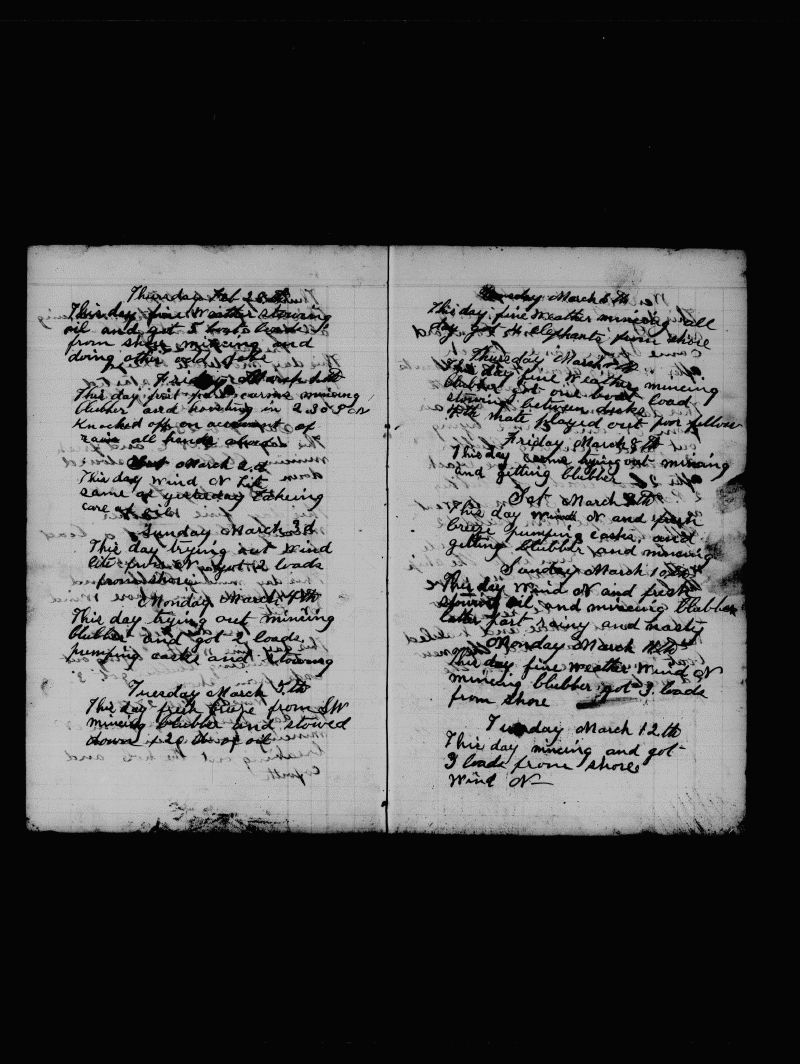 Thursday Feb 28th
This day fine Weather stowing
oil and got 5 boat loads
from shore mincing and
doing other odd jobs
Friday March
This day first part mincing
blubber and hoisting in 230
Knocked off on account of
rain all hands
March 2d
This day Wind N
same as yesterday takeing
care of oil
Sunday March 3d
This day trying out Wind
lite from N got 2 loads
from shore
Monday March 4th
This day trying out mincing
blubber and got 2 loads
pumping casks and stowing
Tuesday March 5th
This day fresh breze from SW
mincing blubber and stowed
down of oil
March 6th
This day fine Weather mincing all
day got elephants from shore
Thursday March
This day fine Weather mincing
blubber got one boat load
stowing between decks
4th mate played out poor fellow
Friday March 8th
This day trying out mincing
and getting blubber
Sat March 9th
This day Wind N and fresh
breeze pumping casks and
getting blubber and mincing
Sunday March 10th
This day Wind N and fresh
stowing oil and mincing blubber
latter part rainy and nasty
Monday March 11th
This day fine weather Wind N
mincing blubber got 3 loads
from shore
Tuesday March 12th
This day mincing and got
3 loads from shore
Wind N